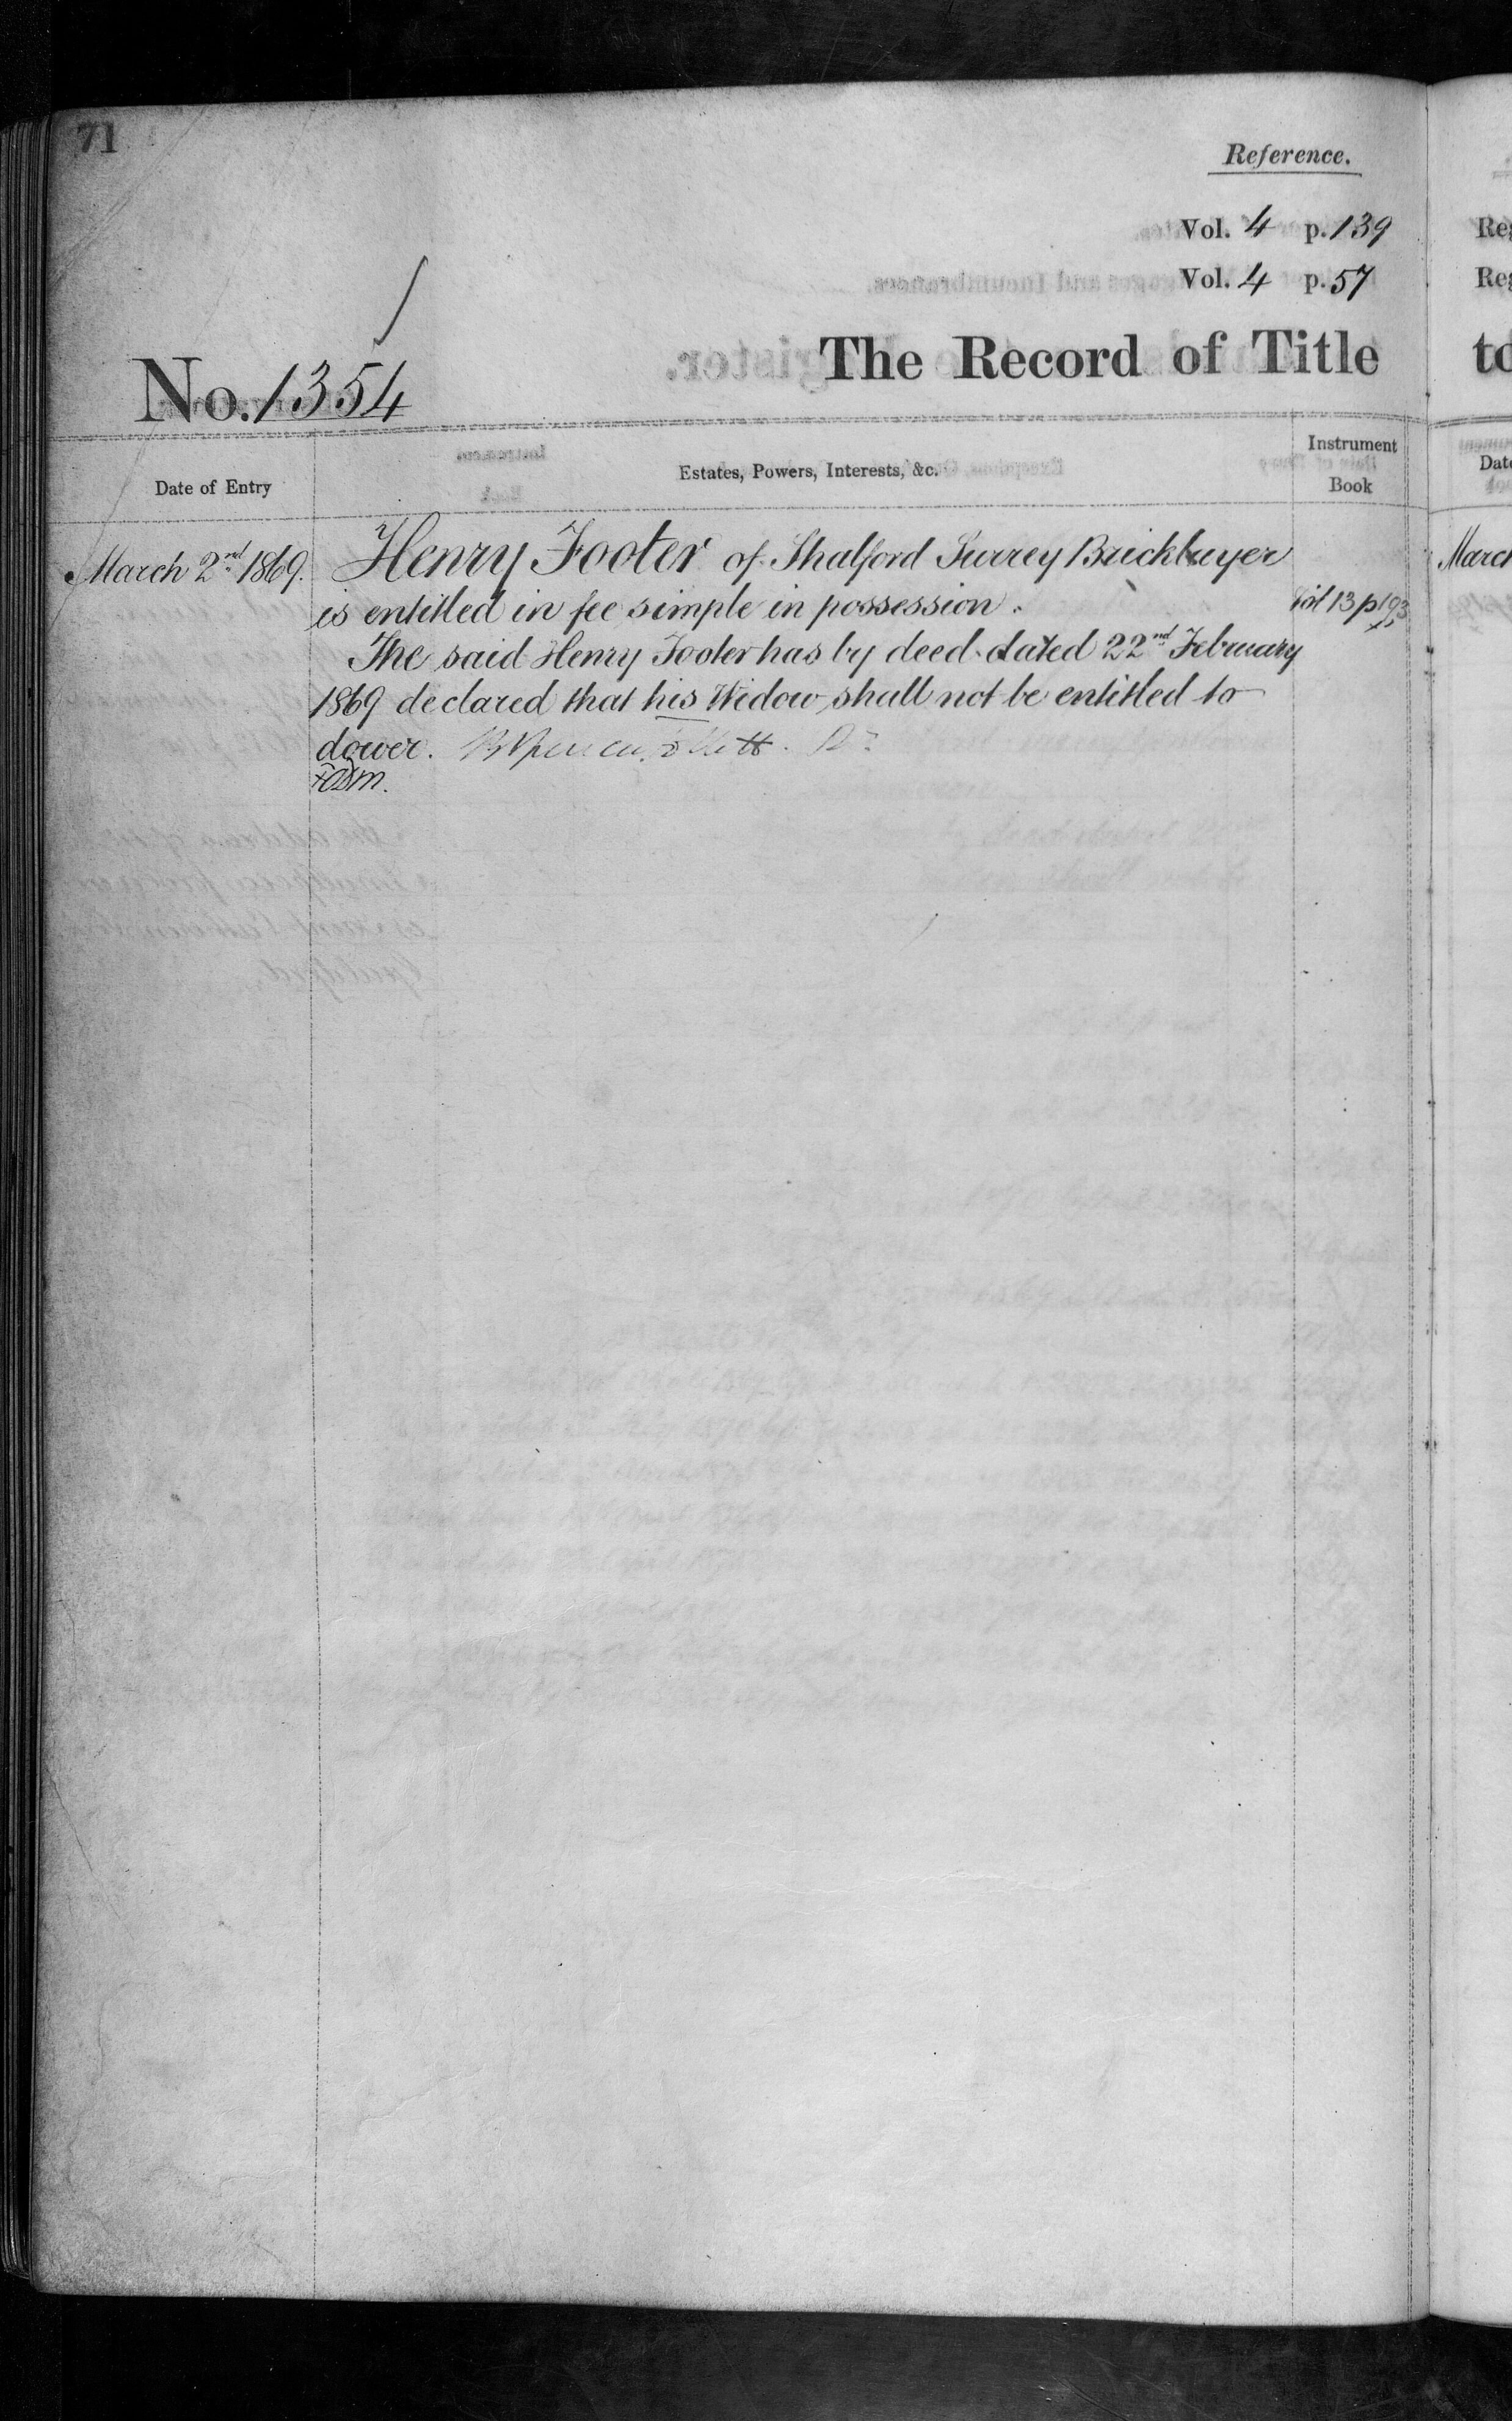 71
Reference.
Vol. 4 p. 139
Vol. 4 p. 57
No. 1354
The Record of Title
Date of Entry
Estates, Powers, Interests, &c.
Instrument
Book
March 2nd 1869.
Henry Footer of Shalford Surrey Bricklayer
is entitled in fee simple in possession.
Vol 13 p 193
The said Henry Footer has by deed dated 22nd February
1869 declared that his Widow shall not be entitled to
dower.
Reg
Reg
to
Date
March